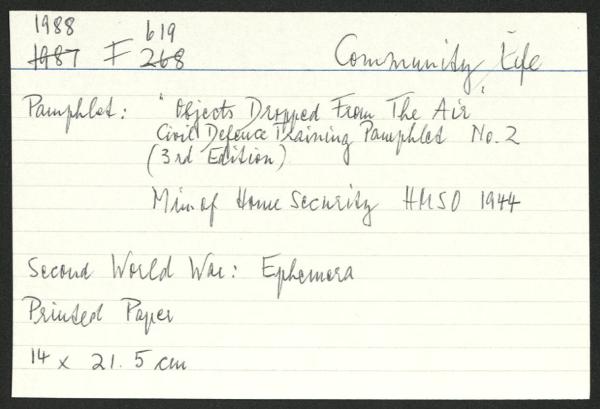 1988 619
1987 F 268 Community Life
Pamphlet: "Objects Dropped From The Air"
Civil Defence Training Pamphlet No. 2
(3rd Edition)
Min. of Home Security HMSO 1944
Second World War: Ephemera
Printed Paper
14 x 21.5 cm